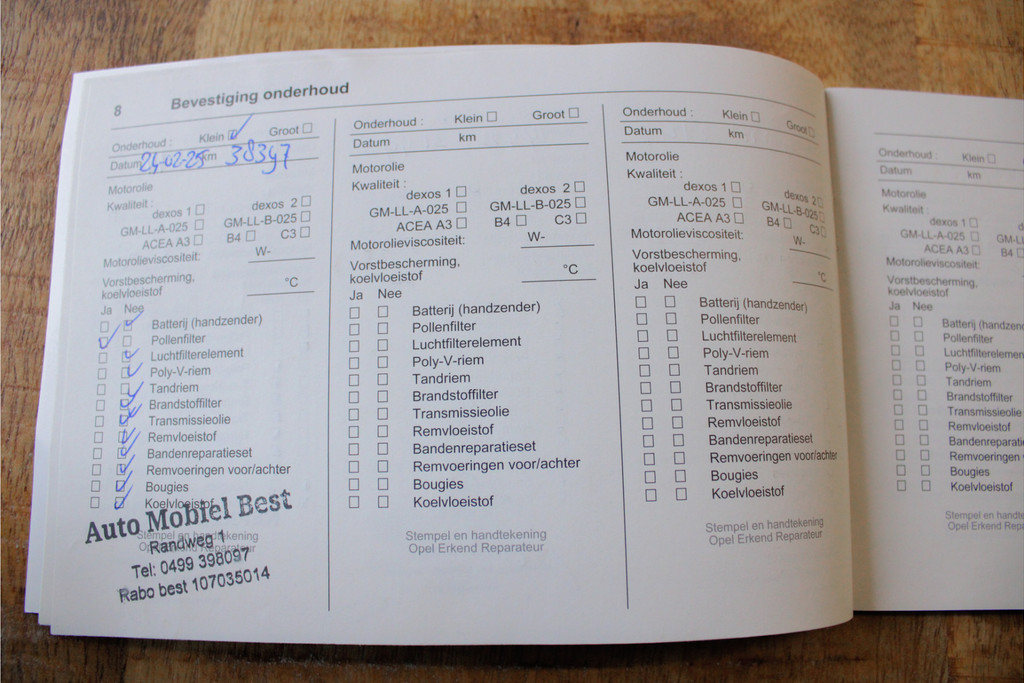 8 Bevestiging onderhoud
Onderhoud : Klein Groot
Datum 24-02-25 km 38347
Motorolie
Kwaliteit :
dexos 1 dexos 2
GM-LL-A-025 GM-LL-B-025
ACEA A3 B4 C3
Motorolieviscositeit: W-
Vorstbescherming,
koelvloeistof °C
Ja Nee
Batterij (handzender)
Pollenfilter
Luchtfilterelement
Poly-V-riem
Tandriem
Brandstoffilter
Transmissieolie
Remvloeistof
Bandenreparatieset
Remvoeringen voor/achter
Bougies
Koelvloeistof
Stempel en handtekening
Opel Erkend Reparateur
Auto Mobiel Best
Randweg 1
Tel: 0499 398097
Rabo best 107035014
Onderhoud : Klein Groot
Datum km
Motorolie
Kwaliteit :
dexos 1 dexos 2
GM-LL-A-025 GM-LL-B-025
ACEA A3 B4 C3
Motorolieviscositeit: W-
Vorstbescherming,
koelvloeistof °C
Ja Nee
Batterij (handzender)
Pollenfilter
Luchtfilterelement
Poly-V-riem
Tandriem
Brandstoffilter
Transmissieolie
Remvloeistof
Bandenreparatieset
Remvoeringen voor/achter
Bougies
Koelvloeistof
Stempel en handtekening
Opel Erkend Reparateur
Onderhoud : Klein Groot
Datum km
Motorolie
Kwaliteit :
dexos 1 dexos 2
GM-LL-A-025 GM-LL-B-025
ACEA A3 B4 C3
Motorolieviscositeit: W-
Vorstbescherming,
koelvloeistof °C
Ja Nee
Batterij (handzender)
Pollenfilter
Luchtfilterelement
Poly-V-riem
Tandriem
Brandstoffilter
Transmissieolie
Remvloeistof
Bandenreparatieset
Remvoeringen voor/achter
Bougies
Koelvloeistof
Stempel en handtekening
Opel Erkend Reparateur
Onderhoud Klein
Datum km
Motorolie
Kwaliteit :
dexos 1
GM-LL-A-025 GM-LL
ACEA A3 B4
Motorolieviscositeit:
Vorstbescherming,
koelvloeistof
Ja Nee
Batterij (handzende
Pollenfilter
Luchtfilterelement
Poly-V-riem
Tandriem
Brandstoffilter
Transmissieolie
Remvloeistof
Bandenreparati
Remvoeringen
Bougies
Koelvloeistof
Stempel en handte
Opel Erkend Repar